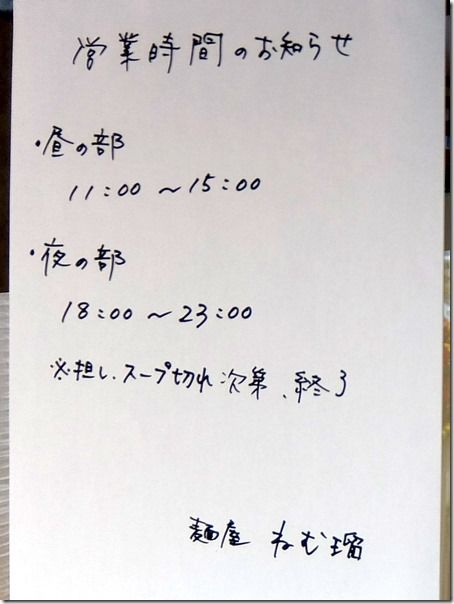 営業時間のお知らせ
・昼の部
11:00 ~15:00
・夜の部
18:00 ~23:00
※担し、スープ切れ次第、終了
麺屋 ねむ瑠